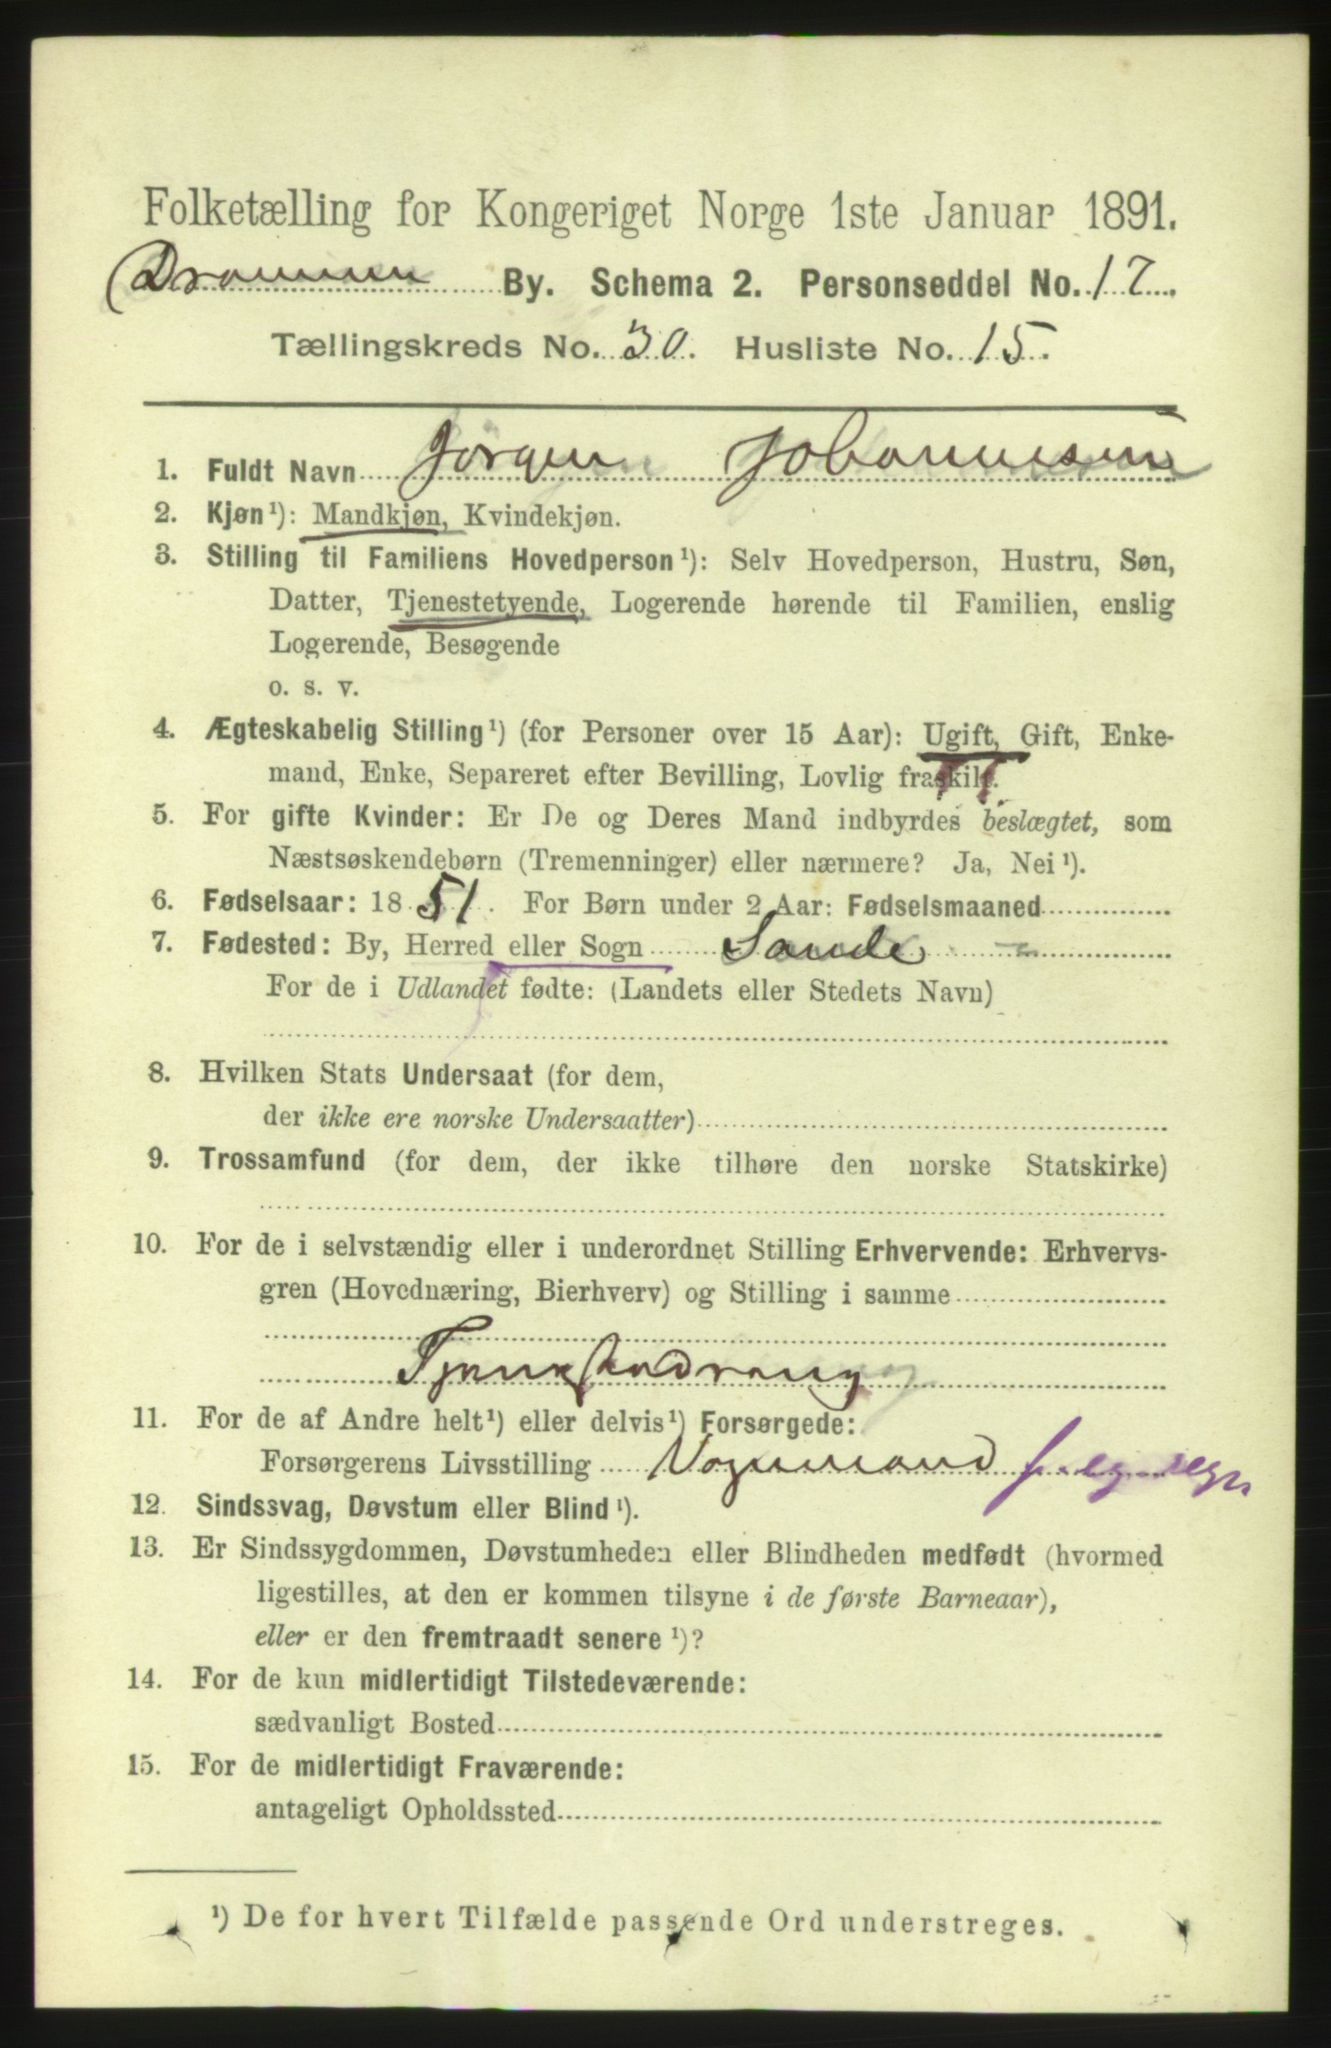 Folketælling for Kongeriget Norge 1ste Januar 1891.
Drammen By. Schema 2. Personseddel No. 17.
Tællingskreds No. 30. Husliste No. 15.
1. Fuldt Navn Jørgen Johannesen
2. Kjøn¹): Mandkjøn, Kvindekjøn.
3. Stilling til Familiens Hovedperson¹): Selv Hovedperson, Hustru, Søn,
Datter, Tjenestetyende, Logerende hørende til Familien, enslig
Logerende, Besøgende
o. s. v.
4. Ægteskabelig Stilling¹) (for Personer over 15 Aar): Ugift, Gift, Enke-
mand, Enke, Separeret efter Bevilling, Lovlig fraskilt.
5. For gifte Kvinder: Er De og Deres Mand indbyrdes beslægtet, som
Næstsøskendebørn (Tremenninger) eller nærmere? Ja, Nei¹).
6. Fødselsaar: 1851. For Børn under 2 Aar: Fødselsmaaned
7. Fødested: By, Herred eller Sogn Sande
For de i Udlandet fødte: (Landets eller Stedets Navn)
8. Hvilken Stats Undersaat (for dem,
der ikke ere norske Undersaatter)
9. Trossamfund (for dem, der ikke tilhøre den norske Statskirke)
10. For de i selvstændig eller i underordnet Stilling Erhvervende: Erhvervs-
gren (Hovednæring, Bierhverv) og Stilling i samme
11. For de af Andre helt¹) eller delvis¹) Forsørgede:
Forsørgerens Livsstilling Vognmand
12. Sindssvag, Døvstum eller Blind¹).
13. Er Sindssygdommen, Døvstumheden eller Blindheden medfødt (hvormed
ligestilles, at den er kommen tilsyne i de første Barneaar),
eller er den fremtraadt senere¹)?
14. For de kun midlertidigt Tilstedeværende:
sædvanligt Bosted
15. For de midlertidigt Fraværende:
antageligt Opholdssted
¹) De for hvert Tilfælde passende Ord understreges.